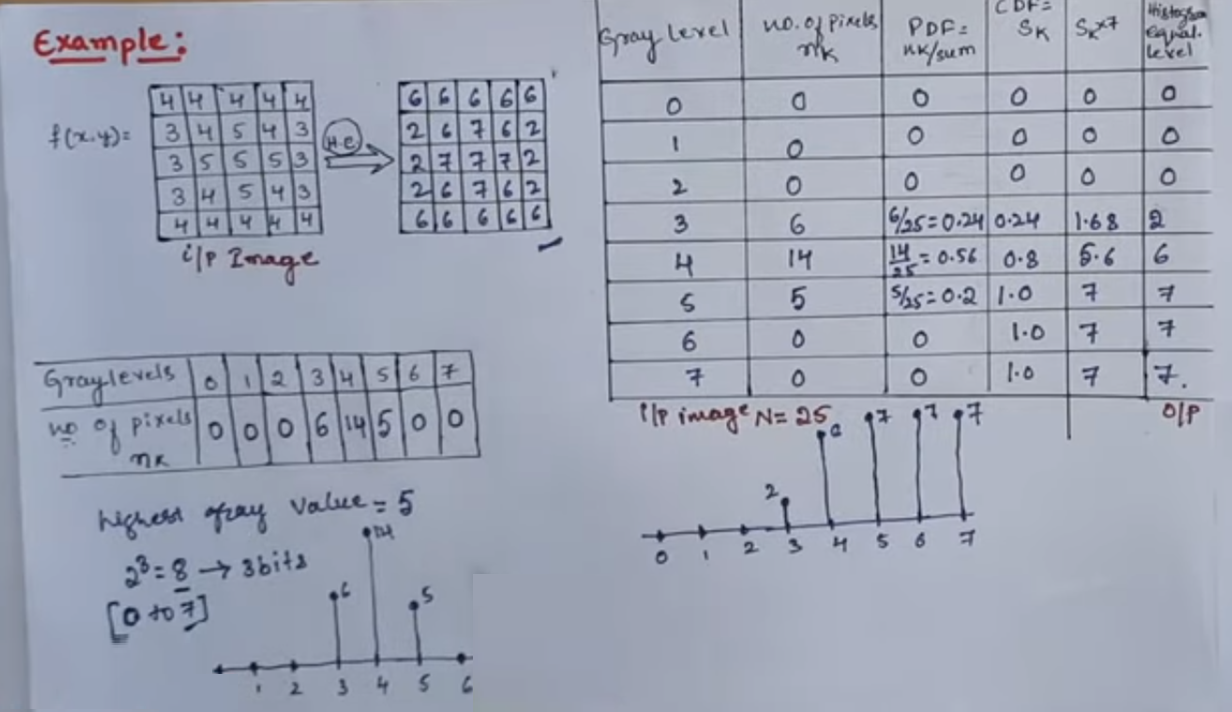 Example:
f(x.y)=
4 4 4 4 4
3 4 5 4 3
3 5 5 5 3
3 4 5 4 3
4 4 4 4 4
i/p Image
H.E
6 6 6 6 6
2 6 7 6 2
2 7 7 7 2
2 6 7 6 2
6 6 6 6 6
Gray levels 0 1 2 3 4 5 6 7
no of pixels nk 0 0 0 6 14 5 0 0
highest gray value = 5
2³ = 8 → 3bits
[0 to 7]
6 14 5
1 2 3 4 5 6
Gray Level no. of pixels nk PDF= nk/sum CDF= SK SK×7 Histogram Equal. Level
0 0 0 0 0 0
1 0 0 0 0 0
2 0 0 0 0 0
3 6 6/25=0.24 0.24 1.68 2
4 14 14/25=0.56 0.8 5.6 6
5 5 5/25=0.2 1.0 7 7
6 0 0 1.0 7 7
7 0 0 1.0 7 7.
i/p image N=25 O/P
2 6 7 7 7
0 1 2 3 4 5 6 7